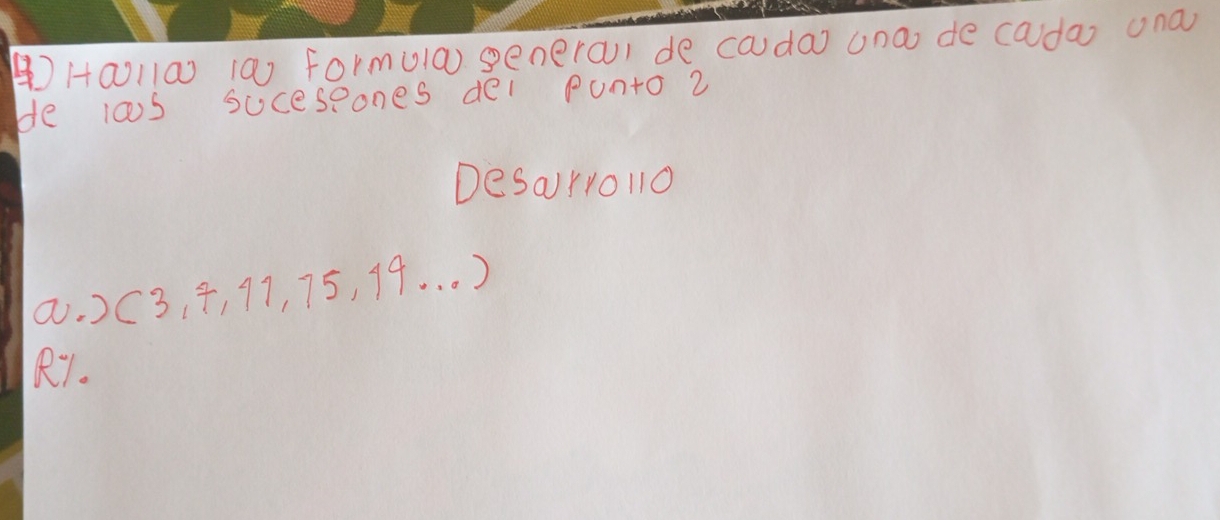 4) Halla la formula general de cada una de cada una
de las sucesiones del punto 2
Desarrollo
a.) (3, 7, 11, 15, 19...)
R%.